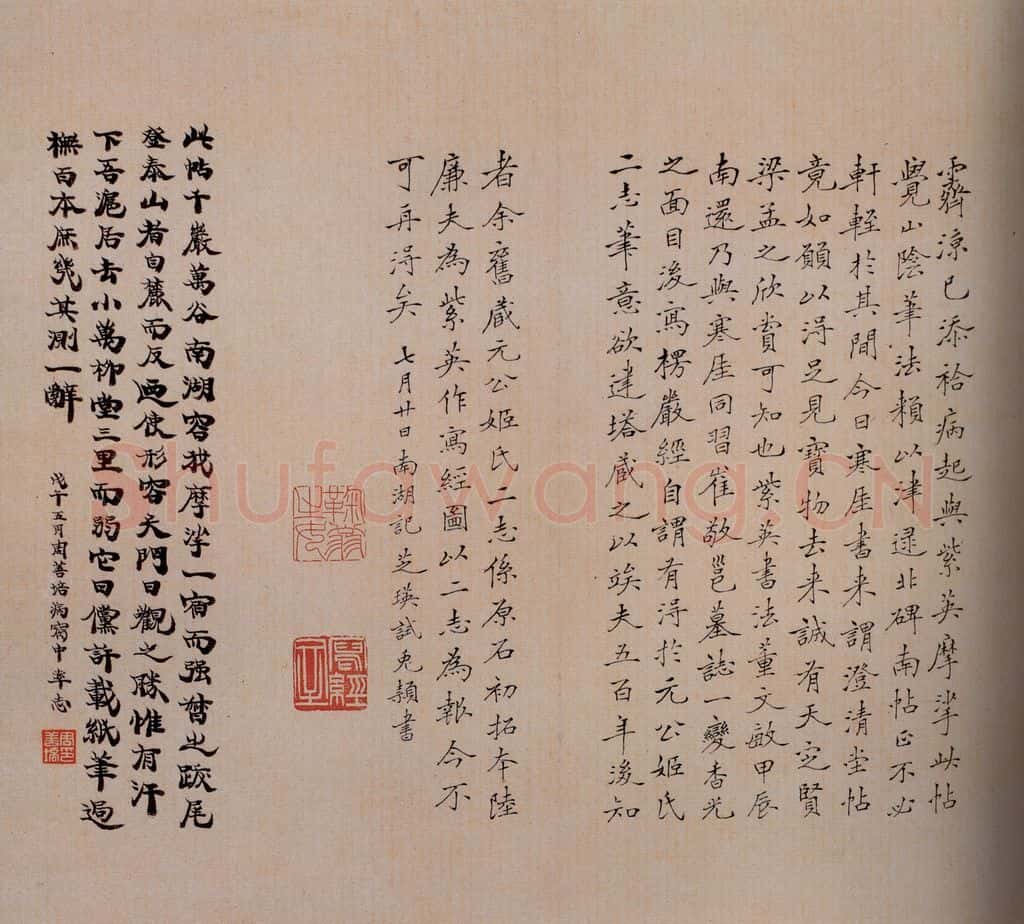 霽涼已添袷病起與紫英摩挲此帖
覺山陰筆法賴以津逮北碑南帖正不必
軒輊於其間今日寒厓書来謂澄清堂帖
竟如願以得足見寶物去来誠有天定賢
梁孟之欣賞可知也紫英書法董文敏甲辰
南還乃與寒厓同習崔敬邕墓誌一變香光
之面目後寫楞嚴經自謂有得於元公姬氏
二志筆意欲建塔藏之以竢夫五百年後知
者余舊藏元公姬氏二志係原石初拓本陸
廉夫為紫英作寫經圖以二志為報今不
可再得矣 七月廿日南湖記 芝瑛試兔穎書
此帖千巖萬谷南湖窅我摩挲一宿而强督之跋尾
登泰山者自麓而反西使形容天門日觀之勝惟有汗
下吾滬居去小萬柳堂三里而弱它日儻許載紙筆過
橅百本庶幾其測一辭
戊午五月周善培病窩中率志
Shufawang.CN